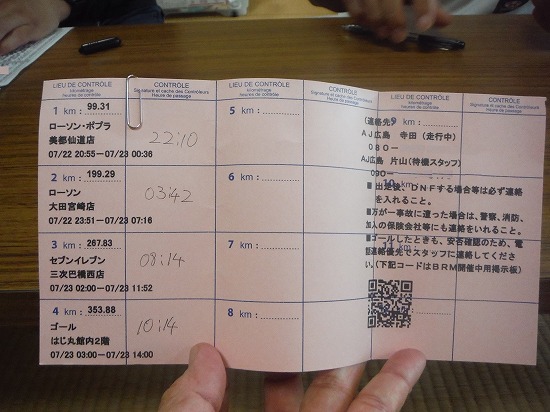 LIEU DE CONTRÔLE
kilométrage
heures de contrôle
CONTRÔLE
Signature et cachet des Contrôleurs
Heure de passage
LIEU DE CONTRÔLE
kilométrage
heures de contrôle
CONTRÔLE
Signature et cachet des Contrôleurs
Heure de passage
LIEU DE CONTRÔLE
kilométrage
heures de contrôle
CONTRÔLE
Signature et cachet des Contrôleurs
Heure de passage
1 km : 99.31
ローソン・ポプラ
美都仙道店
07/22 20:55ー07/23 00:36
22:10
2 km : 199.29
ローソン
大田宮崎店
07/22 23:51ー07/23 07:16
03:42
3 km : 267.83
セブンイレブン
三次巴橋西店
07/23 02:00ー07/23 11:52
08:14
4 km : 353.88
ゴール
はじ丸館内2階
07/23 03:00ー07/23 14:00
10:14
5 km :
6 km :
7 km :
8 km :
9 km :
(連絡先)
AJ広島 寺田(走行中)
080-
AJ広島 片山(待機スタッフ)
090-
10 km :
■出走後、DNFする場合等は必ず連絡
を入れること。
■万が一事故に遭った場合は、警察、消防、
加入の保険会社等にも連絡をいれること。
■ゴールしたときも、安否確認のため、電
話連絡優先でスタッフに連絡してくださ
い。(下記コードはBRM開催中用掲示板)